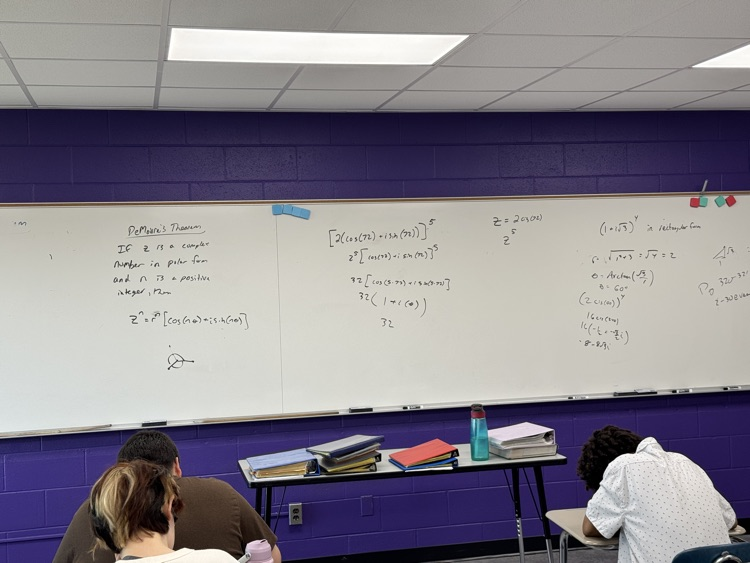 DeMoivre's Theorem
If z is a complex
number in polar form
and n is a positive
integer, then
zⁿ = rⁿ [cos(nθ) + i sin(nθ)]
[2(cos(72) + i sin(72))]⁵
2⁵ [cos(72) + i sin(72)]⁵
32 [cos(5·72) + i sin(5·72)]
32 (1 + i(0))
32
z = 2 cis(72)
z⁵
(1 + i√3)⁴ in rectangular form
r = √(1² + 3) = √4 = 2
θ = Arctan(√3/1)
θ = 60°
(2 cis 60)⁴
16 cis(240)
16(-1/2 + -√3/2 i)
-8 - 8√3 i